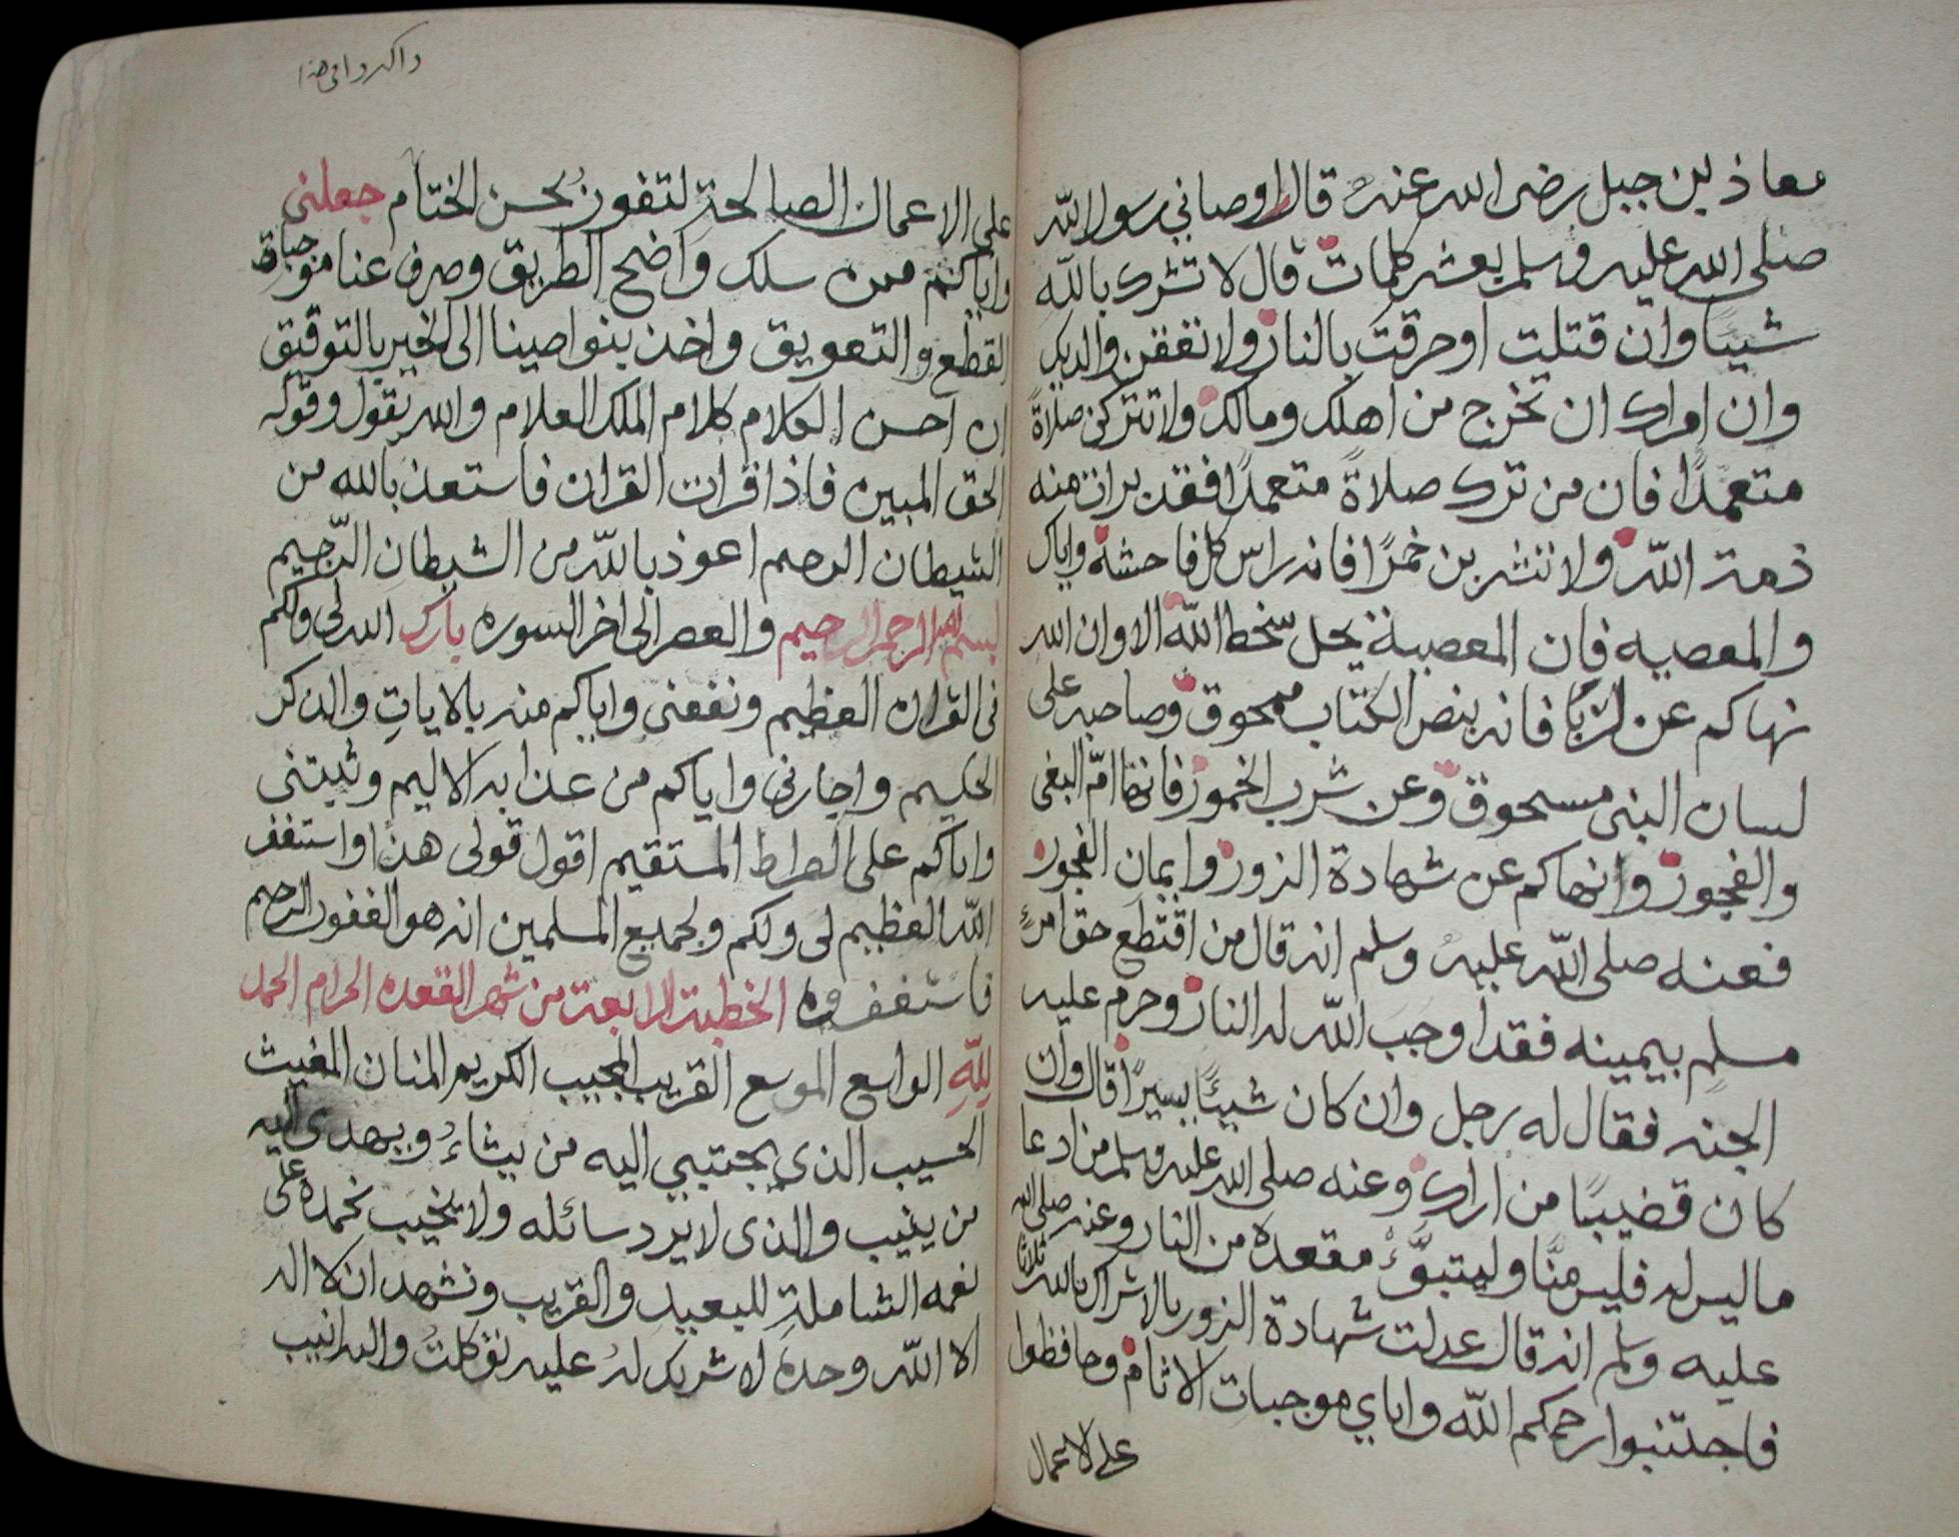 معاذ بن جبل رضى الله عنه قال اوصاني رسول الله
صلى الله عليه وسلم بعشر كلمات قال لا تشرك بالله
شيئا وان قتلت او حرقت بالنار ولا تعقن والديك
وان امراك ان تخرج من اهلك ومالك ولا تتركن صلاةً
متعمدًا فان من ترك صلاةً متعمدًا فقد برات منه
ذمة الله ولا تشربن خمرًا فانه راس كل فاحشة واياك
والمعصيه فان المعصية يحل سخط الله الا وان الله
نهاكم عن الربا فانه بنص الكتاب ممحوق وصاحبه على
لسان النبى مسحوق وعن شرب الخمور فانها امّ البغى
والفجور وانهاكم عن شهادة الزور وايمان الفجور
فعنه صلى الله عليه وسلم انه قال من اقتطع حق امرئٍ
مسلم بيمينه فقد اوجب الله له النار وحرم عليه
الجنه فقال له رجل وان كان شيئًا يسيرًا قال وان
كان قضيبًا من اراك وعنه صلى الله عليه وسلم من ادعا
ما ليس له فليس منَّا وليتبوَّء مقعده من النار وعنه صلى الله
عليه وسلم انه قال عدلت شهادة الزور بالاشراك بالله ثلاثا
فاجتنبوا رحمكم الله واياي موجبات الاثام وحافظوا
على الاعمال
واكدوا فى هذا
على الاعمال الصالحة لتفوزُ بحسن الختام جعلنى
واياكم ممن سلك واضح الطريق وصرف عنا موجباة
القطع والتعويق واخذ بنواصينا الى الخير بالتوفيق
ان احسن الكلام كلام الملك العلام والله يقول وقوله
الحق المبين فاذا قرات القران فاستعذ بالله من
الشيطان الرجيم اعوذ بالله من الشيطان الرّجيم
بسم الله الرحمن الرحيم والعصر الى اخر السوره بارك الله لى ولكم
فى القران العظيم ونفعنى واياكم منه بالاياتِ والذكر
الحكيم واجارنى واياكم من عذابه الاليم وثبتنى
واياكم على الصراط المستقيم اقول قولى هذا واستغفر
الله العظيم لى ولكم ولجميع المسلمين انه هو الغفور الرحيم
فاستغفروه الخطبة الرابعة من شهر القعده الحرام الحمد
للهِ الواسع الموسع القريب المجيب الكريم المنان المغيث
الحسيب الذي يجتبي اليه من يشاءُ ويهدى اليه
من ينيب والذى لا يرد سائله ولا يخيب نحمده على
نعمه الشاملةِ للبعيد والقريب ونشهد ان لا اله
الا الله وحده لا شريك لهُ عليه توكلتُ واليه انيب